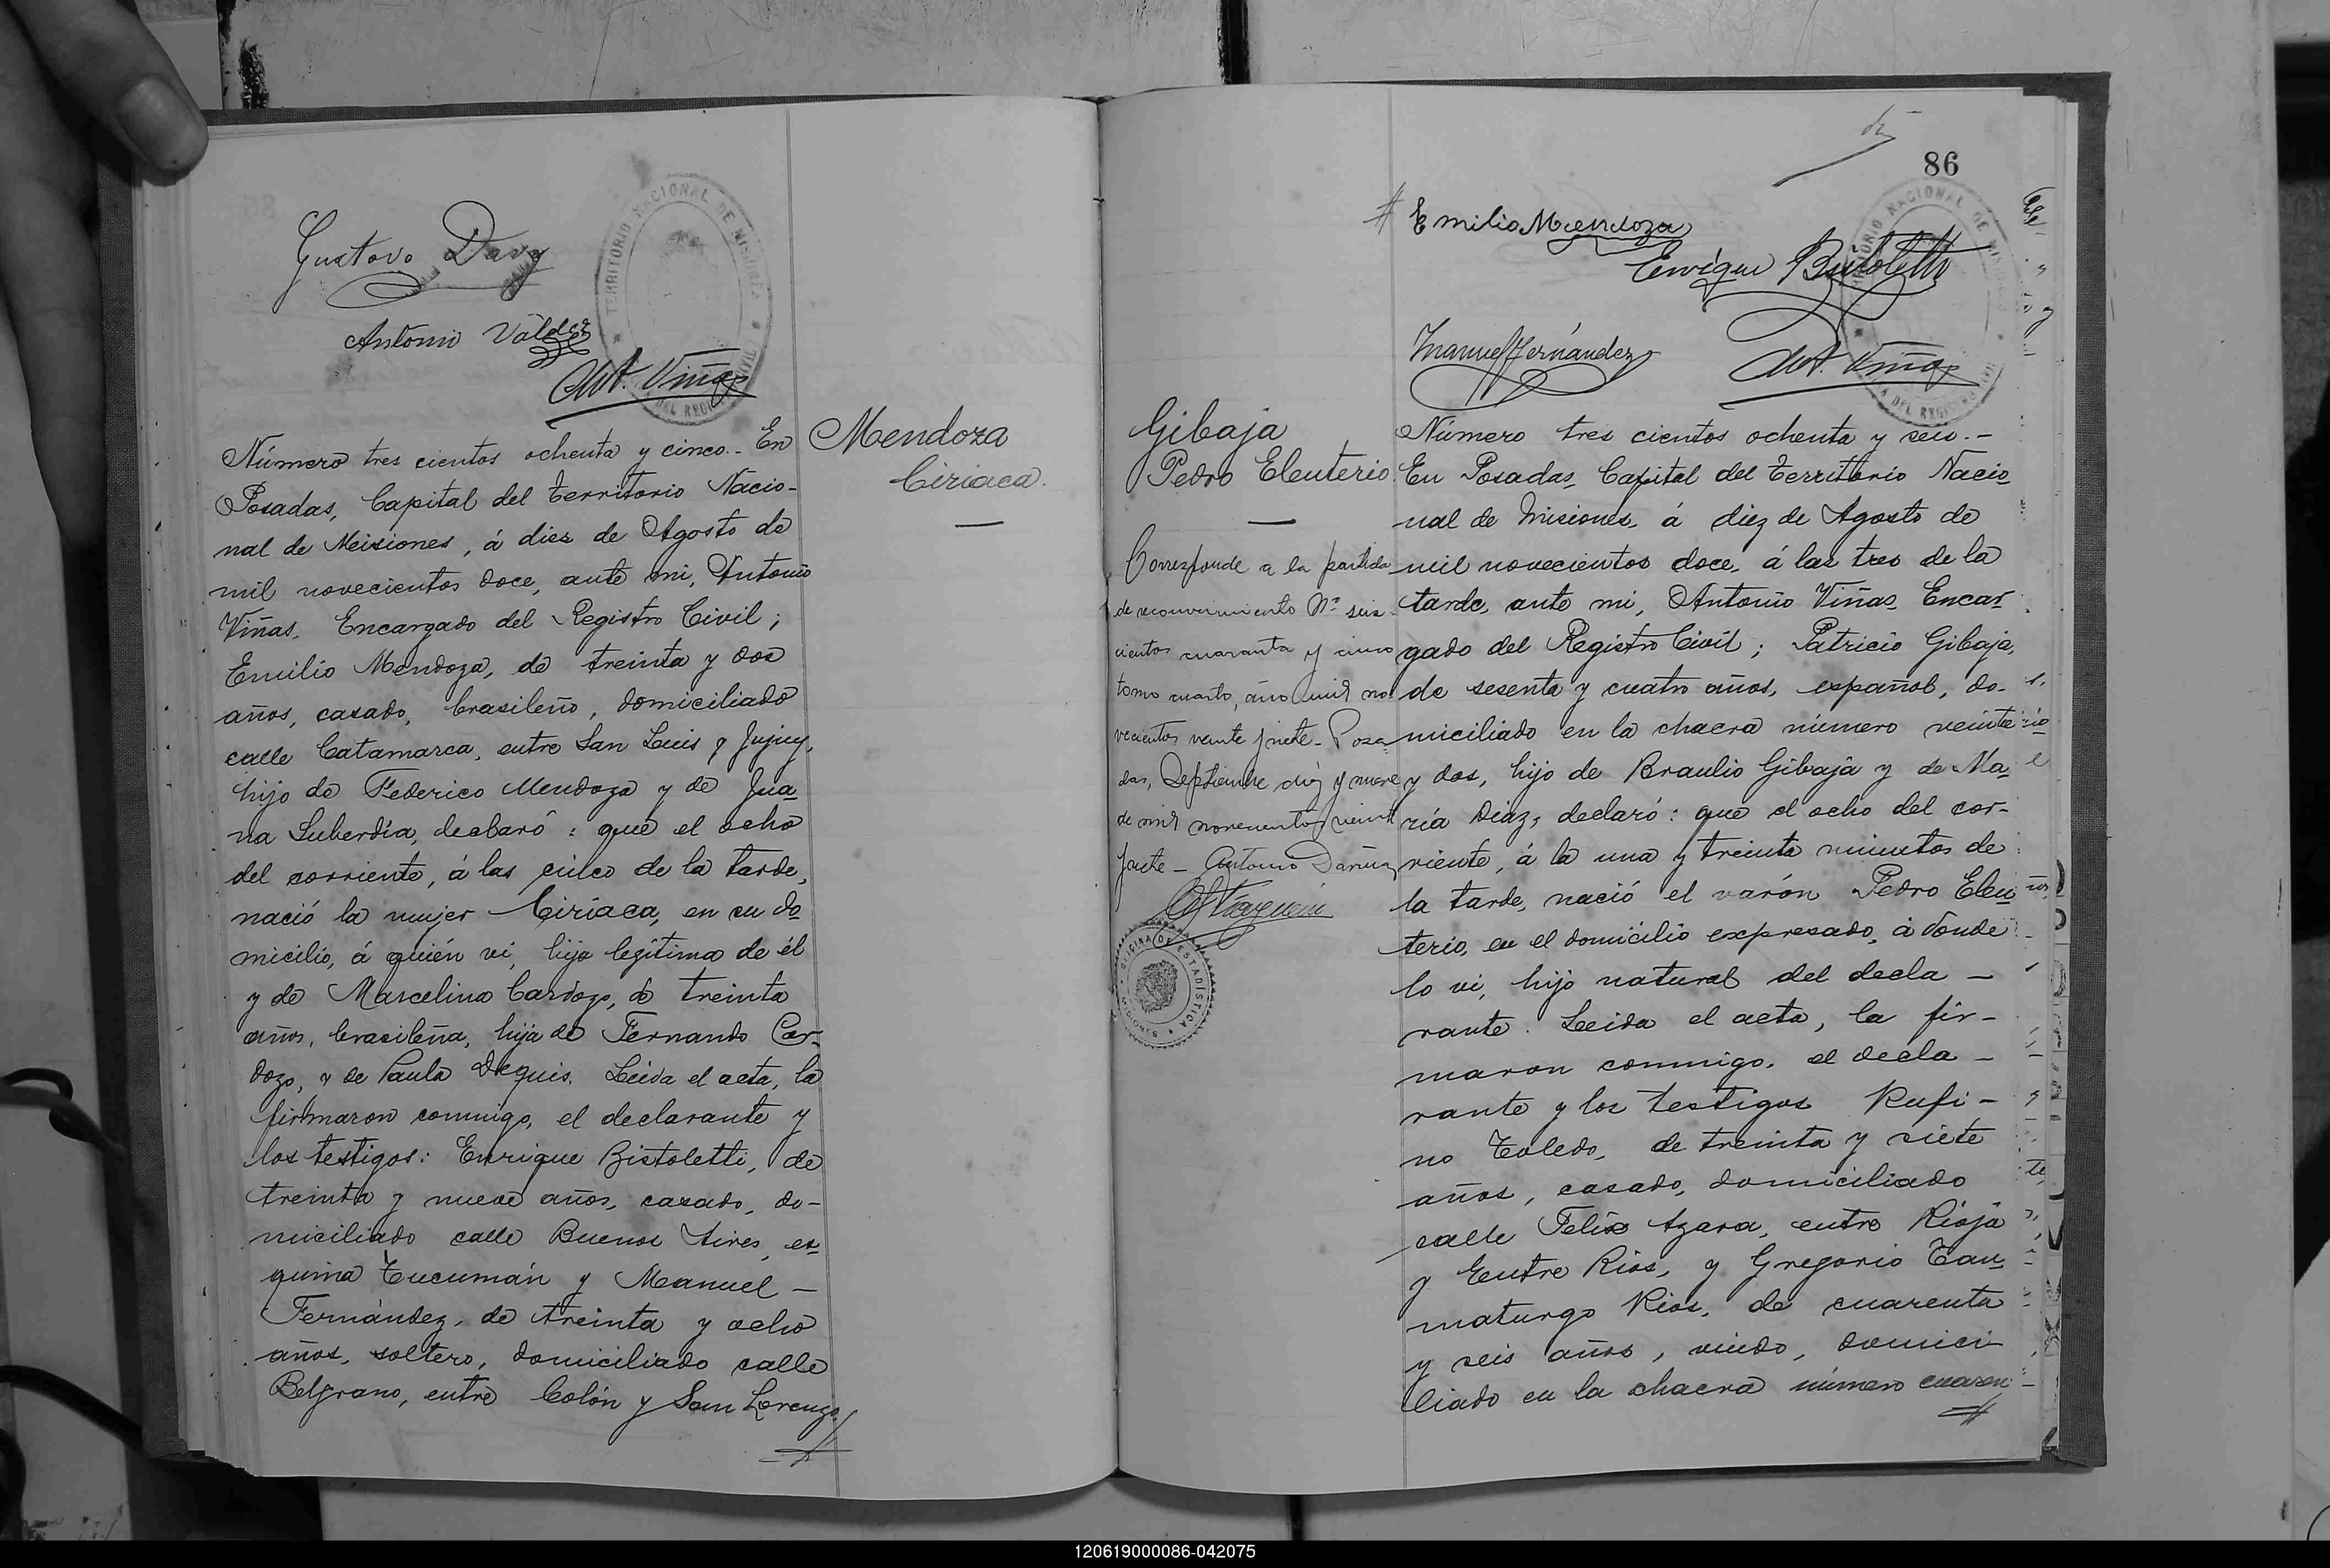 Gustavo Davy
Antonio Valdez
Ant. Viñas
TERRITORIO NACIONAL DE MISIONES
Número tres cientos ochenta y cinco.- En
Posadas, Capital del Territorio Nacio-
nal de Misiones, á diez de Agosto de
mil novecientos doce, ante mi, Antonio
Viñas, Encargado del Registro Civil;
Emilio Mendoza, de treinta y dos
años, casado, brasileño, domiciliado
calle Catamarca, entre San Luis y Jujuy,
hijo de Federico Mendoza y de Jua-
na Luberdia, declaró: que el ocho
del corriente, á las cinco de la tarde,
nació la mujer Ciriaca, en su do-
micilio, á quién vi, hija legítima de él
y de Marcelina Cardozo, de treinta
años, brasileña, hija de Fernando Car-
dozo, y de Paula Deguis. Leida el acta, la
firmaron conmigo, el declarante y
los testigos: Enrique Bistoletti, de
treinta y nueve años, casado, do-
miciliado calle Buenos Aires, es-
quina Tucumán y Manuel -
Fernández, de treinta y ocho
años, soltero, domiciliado calle
Belgrano, entre Colón y San Lorenzo
Mendoza
Ciriaca.
86
Emilio Mendoza
Enrique Bistoletti
Manuel Fernández
Ant. Viñas
Gibaja
Pedro Eleuterio.
Corresponde a la partida
de reconocimiento Nº seis-
cientos cuarenta y cinco
tomo cuarto, año mil no-
vecientos veinte y siete - Posa-
das, Septiembre diez y nueve
de mil novecientos veinti
siete - Antonio
OFICINA DE ESTADISTICA
MISIONES
Número tres cientos ochenta y seis.-
En Posadas, Capital del Territorio Nacio-
nal de Misiones, á diez de Agosto de
mil novecientos doce, á las tres de la
tarde, ante mi, Antonio Viñas, Encar-
gado del Registro Civil; Patricio Gibaja,
de sesenta y cuatro años, español, do-
miciliado en la chacra número veinte
y dos, hijo de Braulio Gibaja y de Ma-
ría Diaz, declaró: que el ocho del cor-
riente, á la una y treinta minutos de
la tarde, nació el varón Pedro Eleu-
terio, en el domicilio expresado, á donde
lo vi, hijo natural del decla -
rante. Leida el acta, la fir-
maron conmigo, el decla -
rante y los testigos Rufi -
no Toledo, de treinta y siete
años, casado, domiciliado
calle Felix Azara, entre Rioja
y Entre Rios, y Gregorio Tau-
maturgo Rios, de cuarenta
y seis años, viudo, domici-
liado en la chacra número cuaren-
120619000086-042075